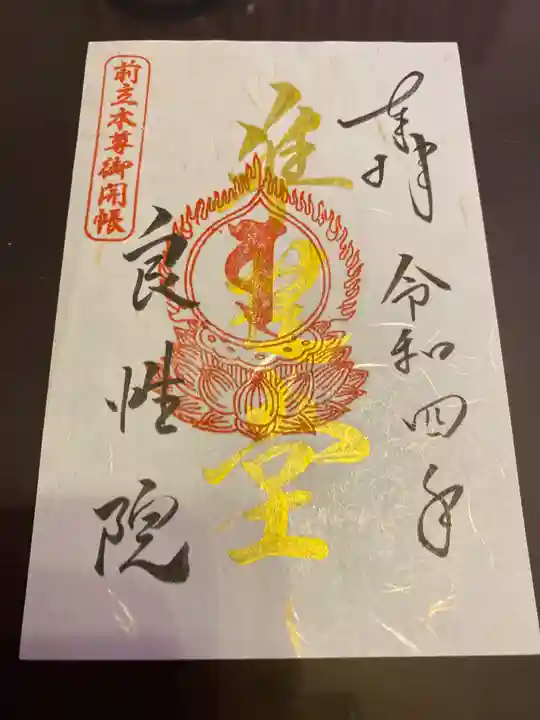 奉拝 令和四年
堂
前立本尊御開帳
良性院